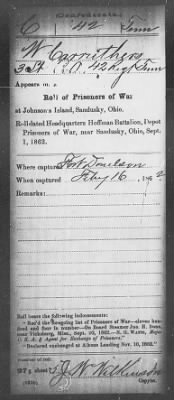 Confederate.
C 42 Tenn
W Carruthers
3 Lt, Co. , 42 Reg't Tenn
Appears on a
Roll of Prisoners of War
at Johnson's Island, Sandusky, Ohio.
Roll dated Headquarters Hoffman Battalion, Depot
Prisoners of War, near Sandusky, Ohio, Sept.
1, 1862.
Where captured Fort Donelson
When captured Feby 16, 1862
Remarks:
Roll bears the following indorsements:
"Rec'd the foregoing list of Prisoners of War—eleven hundred and four in number—On Board Steamer Jno. H. Done,
near Vicksburg, Miss., Sept. 20, 1862.—N. G. Watts, Major
C. S. A. & Agent for Exchange of Prisoners."
"Declared exchanged at Aikens Landing Nov. 10, 1862."
Number of roll:
J. W. Wilkinson
Copyist.